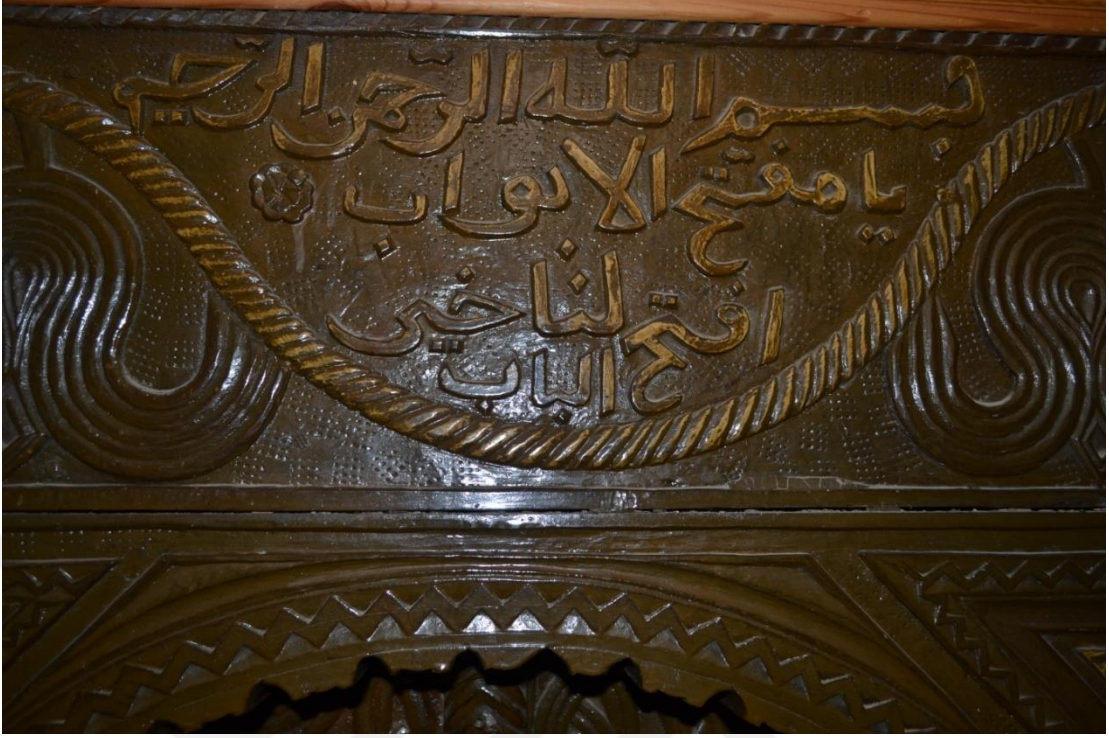 بسم الله الرحمن الرحيم
يا مفتح الابواب
افتح لنا خير
الباب